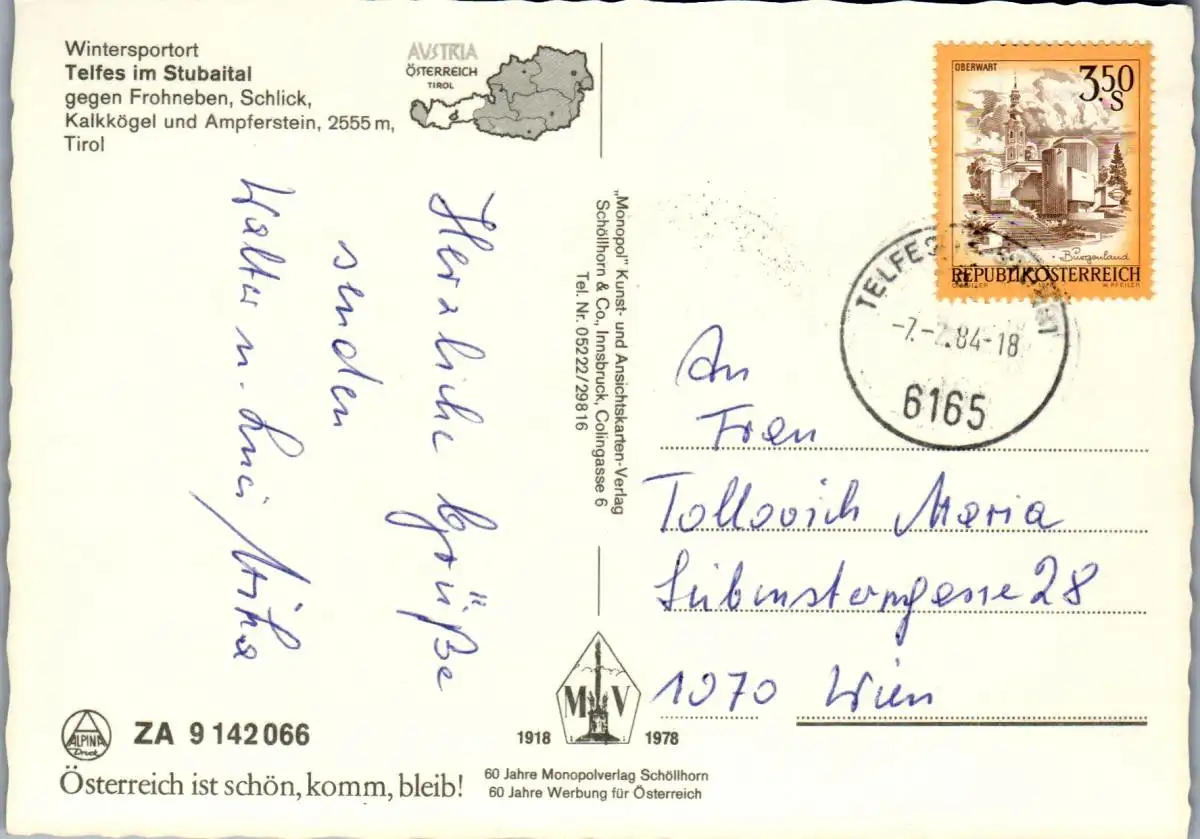 Wintersportort
Telfes im Stubaital
gegen Frohneben, Schlick,
Kalkkögel und Ampferstein, 2555 m,
Tirol
AUSTRIA
ÖSTERREICH
TIROL
Herzliche Grüße
senden
Walter u.
„Monopol" Kunst- und Ansichtskarten-Verlag
Schöllhorn & Co., Innsbruck, Colingasse 6
Tel. Nr. 05222/29816
OBERWART
3.50
S
Burgenland
REPUBLIK ÖSTERREICH
W. PFEILER
TELFES
-7.-2.84-18
6165
An
Frau
Tollovich Maria
Siebensterngasse 28
1070 Wien
M V
1918 1978
60 Jahre Monopolverlag Schöllhorn
60 Jahre Werbung für Österreich
ALPINA
Druck
ZA 9 142 066
Österreich ist schön, komm, bleib!